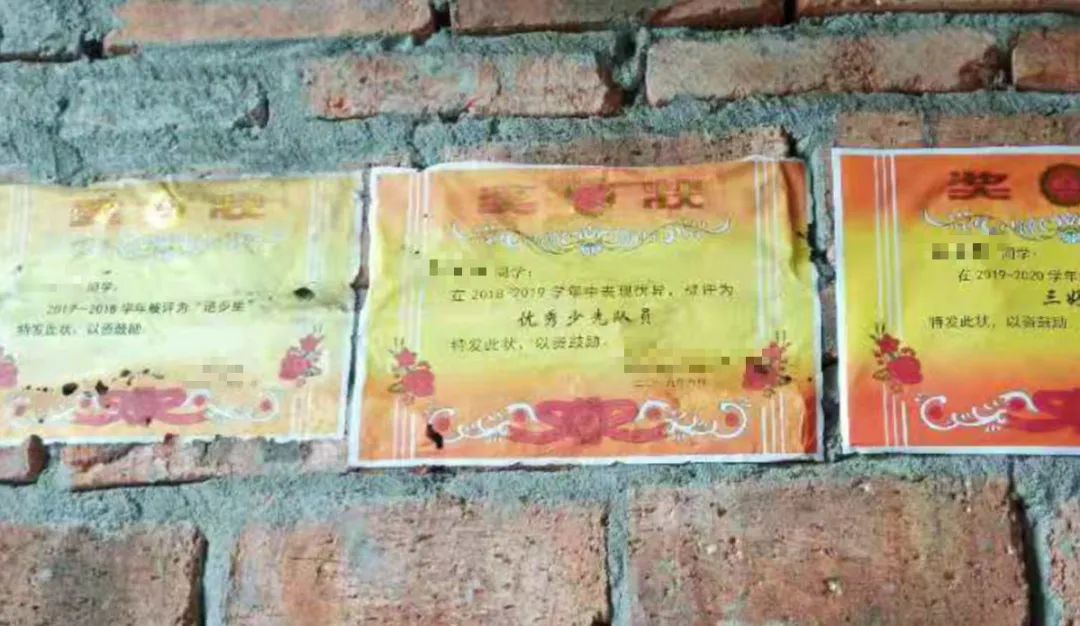 奖状
同学:
2017-2018学年被评为“进步生”
特发此状,以资鼓励。
奖状
同学:
在2018-2019学年中表现优异,被评为
优秀少先队员
特发此状,以资鼓励。
二〇一九年六月
奖
同学:
在2019-2020学年
三
特发此状,以资鼓励